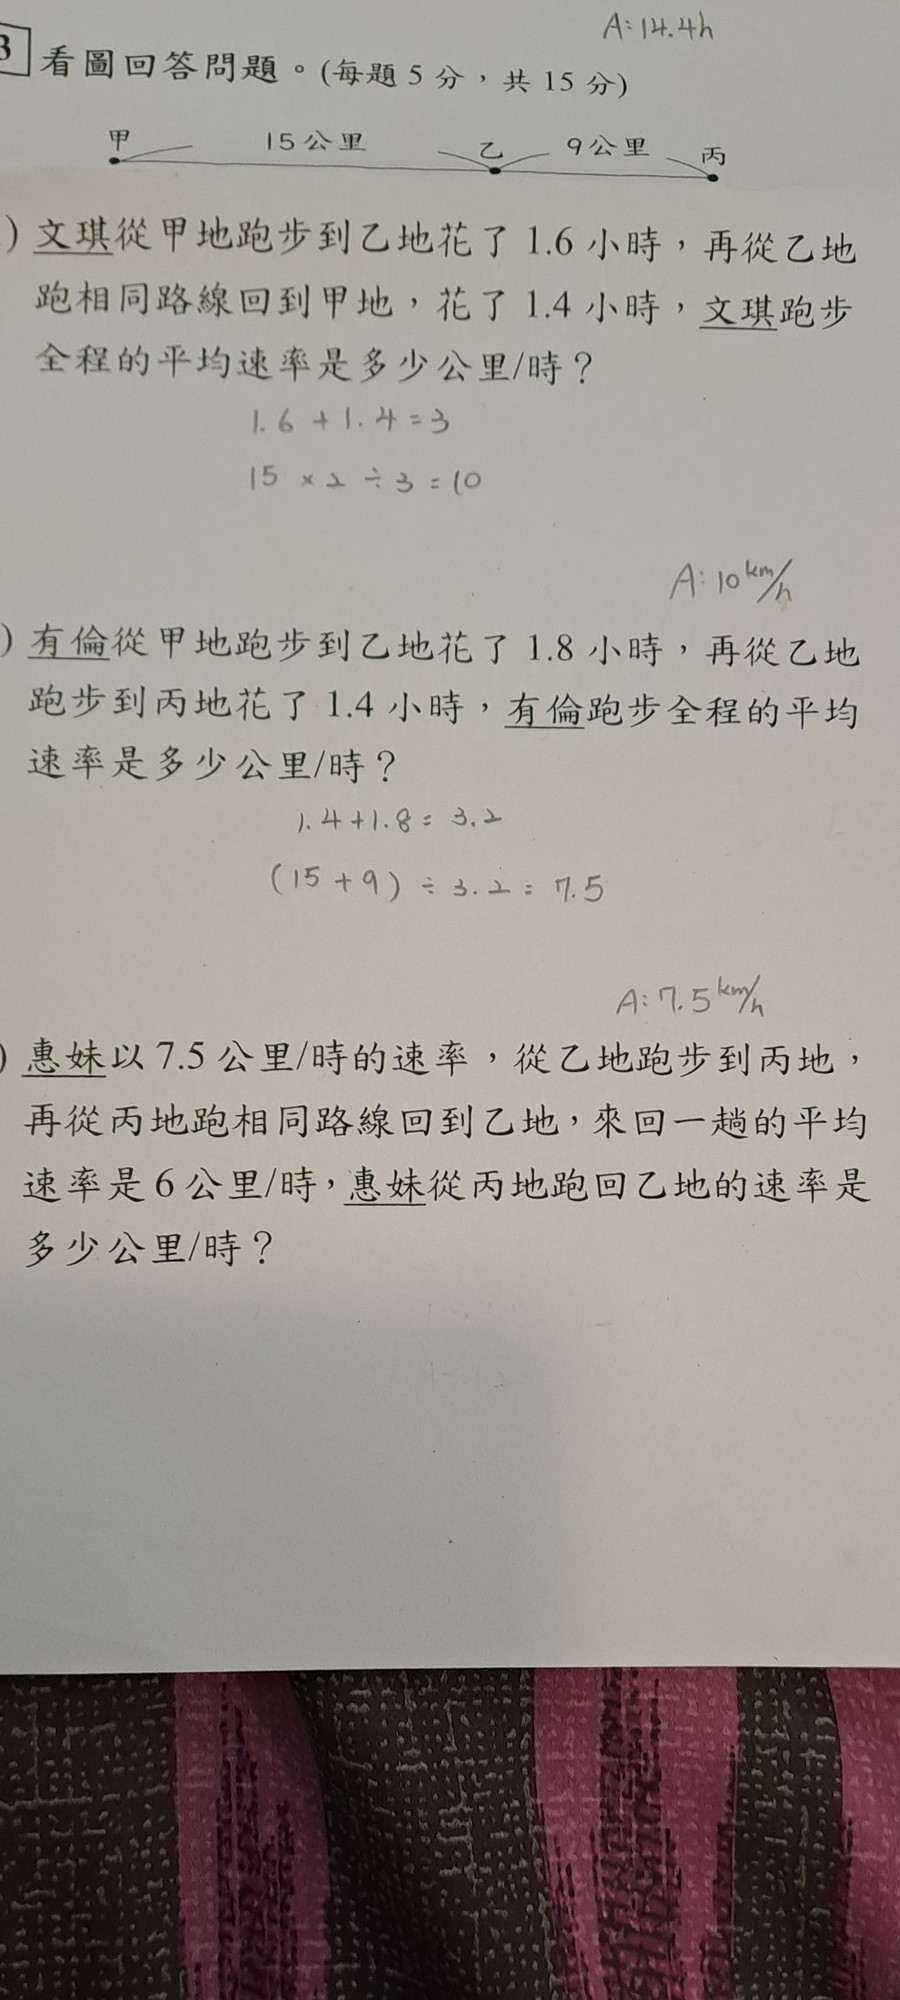 A: 14.4h
3 看圖回答問題。(每題 5 分，共 15 分)
甲 15公里 乙 9公里 丙
) 文琪從甲地跑步到乙地花了 1.6 小時，再從乙地
跑相同路線回到甲地，花了 1.4 小時，文琪跑步
全程的平均速率是多少公里/時？
1.6 + 1.4 = 3
15 × 2 ÷ 3 = 10
A: 10 km/h
) 有倫從甲地跑步到乙地花了 1.8 小時，再從乙地
跑步到丙地花了 1.4 小時，有倫跑步全程的平均
速率是多少公里/時？
1.4 + 1.8 = 3.2
(15 + 9) ÷ 3.2 = 7.5
A: 7.5 km/h
) 惠妹以 7.5 公里/時的速率，從乙地跑步到丙地，
再從丙地跑相同路線回到乙地，來回一趟的平均
速率是 6 公里/時，惠妹從丙地跑回乙地的速率是
多少公里/時？